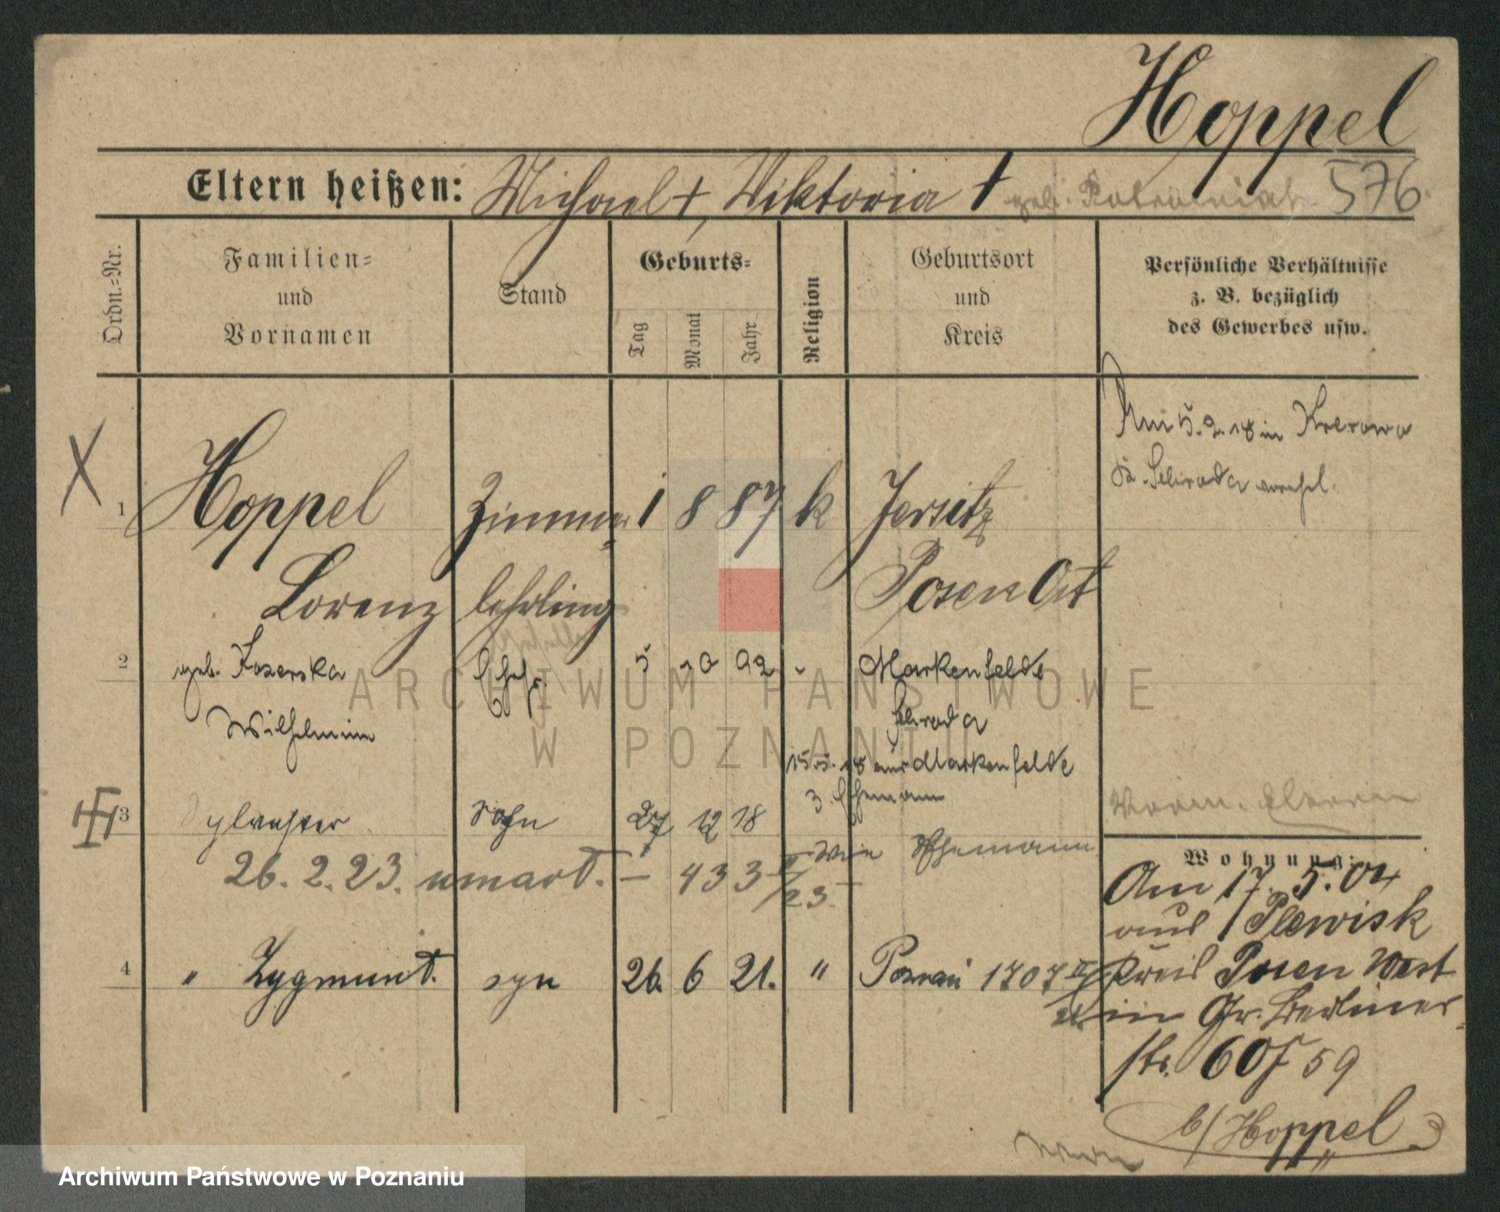 Hoppel
Eltern heißen: Michael †, Viktoria † geb. 576
Ordn.-Nr.
Familien-
und
Vornamen
Stand
Geburts-
Tag
Monat
Jahr
Religion
Geburtsort
und
Kreis
Persönliche Verhältnisse
z. B. bezüglich
des Gewerbes usw.
Am 5.2.18 in Krerowo
Kr. Schroda verehel.
X
1 Hoppel Zimmer- 1 8 87 k Jersitz
Lorenz lehrling Posen Ost
2 geb. Koserska Ehefr. 5 10 92 " Markenfelde
Wilhelmine Schroda
15.5.18 aus Markenfelde
z. Ehemann
3 Sylvester Sohn 27 12 18 wie Ehemann
26. 2. 23. umarł. – 433 II/23 –
4 " Zygmunt. syn 26. 6 21. " Poznań 1707 II
Wohnung:
Am 17. 5. 04
aus Plewisk
Kreis Posen West
in Gr. Berliner-
str. 60 59
b/Hoppel
ARCHIWUM PAŃSTWOWE
W POZNANIU
Archiwum Państwowe w Poznaniu